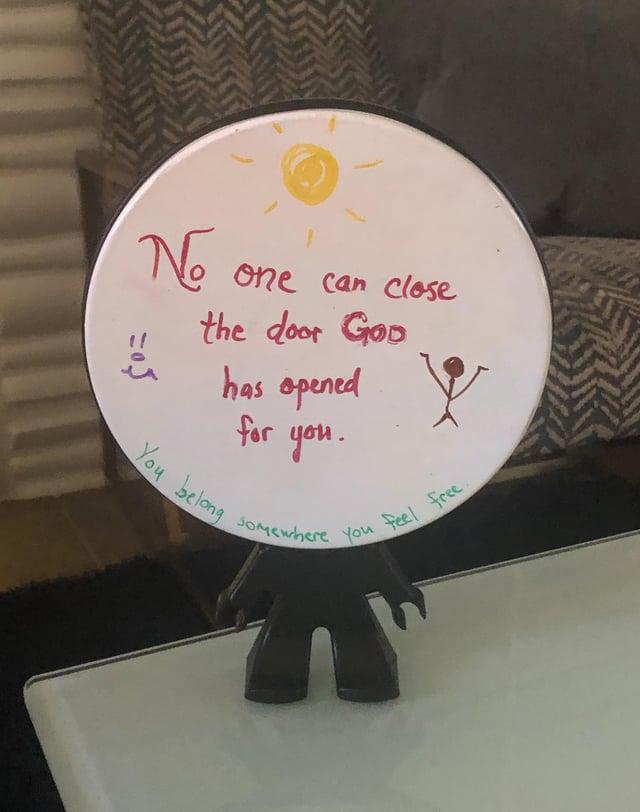 No one can close
the door GOD
has opened
for you.
You belong somewhere you feel free.